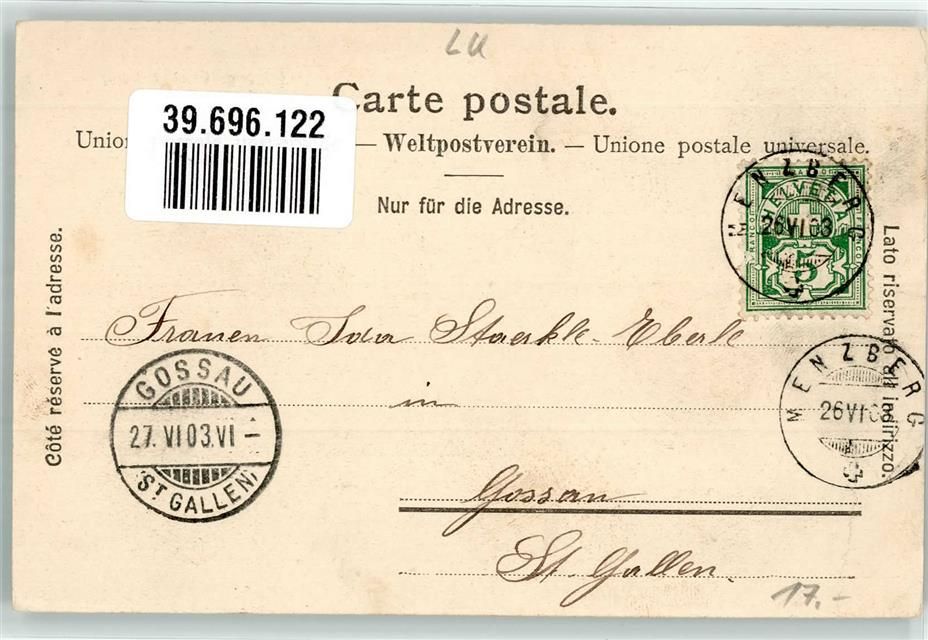 LU
Carte postale.
39.696.122
Union — Weltpostverein. — Unione postale universale.
Nur für die Adresse.
Côté réservé à l'adresse.
Lato riservato all indirizzo.
MENZBERG
26 VI 03
HELVETIA
FRANCO FRANCO
5
Frauen Ida Staerkle-Eberle
in
MENZBERG
26 VI 03
GOSSAU
27. VI 03. VI –
(ST GALLEN)
Gossau
St. Gallen.
17.-